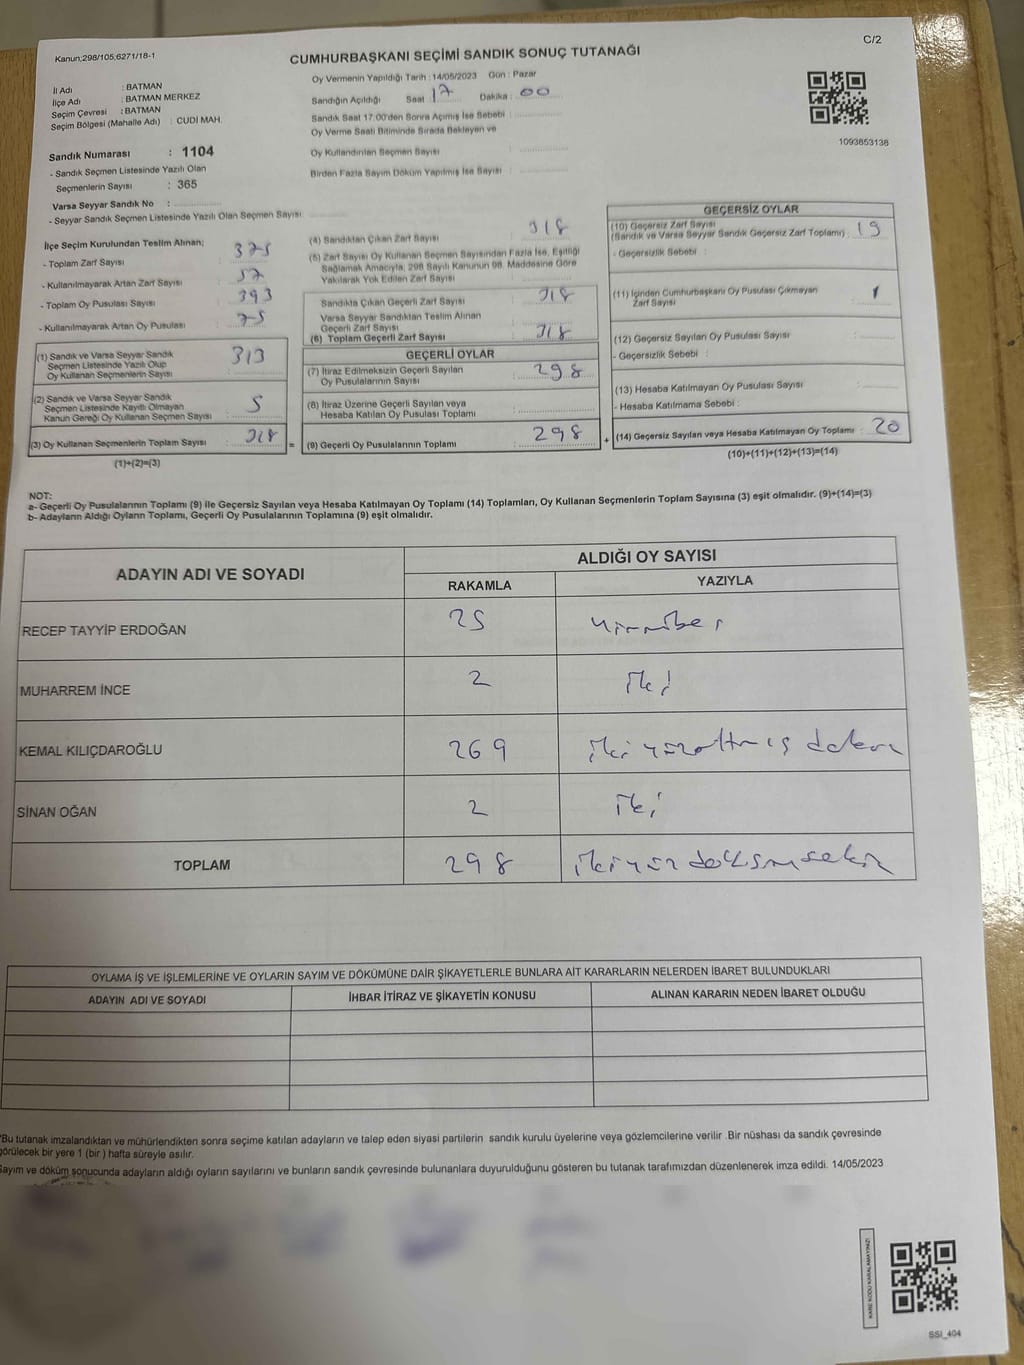 Kanun;298/105;6271/18-1
C/2
CUMHURBAŞKANI SEÇİMİ SANDIK SONUÇ TUTANAĞI
Oy Vermenin Yapıldığı Tarih : 14/05/2023 Gün : Pazar
İl Adı : BATMAN
İlçe Adı : BATMAN MERKEZ
Seçim Çevresi : BATMAN
Seçim Bölgesi (Mahalle Adı) : CUDİ MAH.
Sandığın Açıldığı Saat 17 Dakika : 00
Sandık Saat 17:00'den Sonra Açımış İse Sebebi :
Oy Verme Saati Bitiminde Sırada Bekleyen ve
Oy Kullandırılan Seçmen Sayısı :
Birden Fazla Sayım Döküm Yapılmış İse Sayısı :
1093853138
Sandık Numarası : 1104
- Sandık Seçmen Listesinde Yazılı Olan
Seçmenlerin Sayısı : 365
Varsa Seyyar Sandık No :
- Seyyar Sandık Seçmen Listesinde Yazılı Olan Seçmen Sayısı
İlçe Seçim Kurulundan Teslim Alınan;
- Toplam Zarf Sayısı 375
- Kullanılmayarak Artan Zarf Sayısı 57
- Toplam Oy Pusulası Sayısı 393
- Kullanılmayarak Artan Oy Pusulası 75
(1) Sandık ve Varsa Seyyar Sandık
Seçmen Listesinde Yazılı Olup
Oy Kullanan Seçmenlerin Sayısı 313
(2) Sandık ve Varsa Seyyar Sandık
Seçmen Listesinde Kayıtlı Olmayan
Kanun Gereği Oy Kullanan Seçmen Sayısı 5
(3) Oy Kullanan Seçmenlerin Toplam Sayısı 318 =
(1)+(2)=(3)
(4) Sandıktan Çıkan Zarf Sayısı 318
(5) Zarf Sayısı Oy Kullanan Seçmen Sayısından Fazla İse, Eşitliği
Sağlamak Amacıyla, 298 Sayılı Kanunun 98. Maddesine Göre
Yakılarak Yok Edilen Zarf Sayısı
Sandıkta Çıkan Geçerli Zarf Sayısı 318
Varsa Seyyar Sandıktan Teslim Alınan
Geçerli Zarf Sayısı
(6) Toplam Geçerli Zarf Sayısı 318
GEÇERLİ OYLAR
(7) İtiraz Edilmeksizin Geçerli Sayılan
Oy Pusulalarının Sayısı 298
(8) İtiraz Üzerine Geçerli Sayılan veya
Hesaba Katılan Oy Pusulası Toplamı
(9) Geçerli Oy Pusulalarının Toplamı 298 +
GEÇERSİZ OYLAR
(10) Geçersiz Zarf Sayısı
(Sandık ve Varsa Seyyar Sandık Geçersiz Zarf Toplamı) 19
- Geçersizlik Sebebi :
(11) İçinden Cumhurbaşkanı Oy Pusulası Çıkmayan
Zarf Sayısı 1
(12) Geçersiz Sayılan Oy Pusulası Sayısı
- Geçersizlik Sebebi :
(13) Hesaba Katılmayan Oy Pusulası Sayısı
- Hesaba Katılmama Sebebi :
(14) Geçersiz Sayılan veya Hesaba Katılmayan Oy Toplamı : 20
(10)+(11)+(12)+(13)=(14)
NOT:
a- Geçerli Oy Pusulalarının Toplamı (9) ile Geçersiz Sayılan veya Hesaba Katılmayan Oy Toplamı (14) Toplamları, Oy Kullanan Seçmenlerin Toplam Sayısına (3) eşit olmalıdır. (9)+(14)=(3)
b- Adayların Aldığı Oyların Toplamı, Geçerli Oy Pusulalarının Toplamına (9) eşit olmalıdır.
ADAYIN ADI VE SOYADI ALDIĞI OY SAYISI
RAKAMLA YAZIYLA
RECEP TAYYİP ERDOĞAN 25 yirmibeş
MUHARREM İNCE 2 iki
KEMAL KILIÇDAROĞLU 269 ikiyüzaltmış dokuz
SİNAN OĞAN 2 iki
TOPLAM 298 ikiyüz doksansekiz
OYLAMA İŞ VE İŞLEMLERİNE VE OYLARIN SAYIM VE DÖKÜMÜNE DAİR ŞİKAYETLERLE BUNLARA AİT KARARLARIN NELERDEN İBARET BULUNDUKLARI
ADAYIN ADI VE SOYADI İHBAR İTİRAZ VE ŞİKAYETİN KONUSU ALINAN KARARIN NEDEN İBARET OLDUĞU
*Bu tutanak imzalandıktan ve mühürlendikten sonra seçime katılan adayların ve talep eden siyasi partilerin sandık kurulu üyelerine veya gözlemcilerine verilir .Bir nüshası da sandık çevresinde
görülecek bir yere 1 (bir ) hafta süreyle asılır.
Sayım ve döküm sonucunda adayların aldığı oyların sayılarını ve bunların sandık çevresinde bulunanlara duyurulduğunu gösteren bu tutanak tarafımızdan düzenlenerek imza edildi. 14/05/2023
KARE KODU KARALAMAYINIZ!
SSI_404